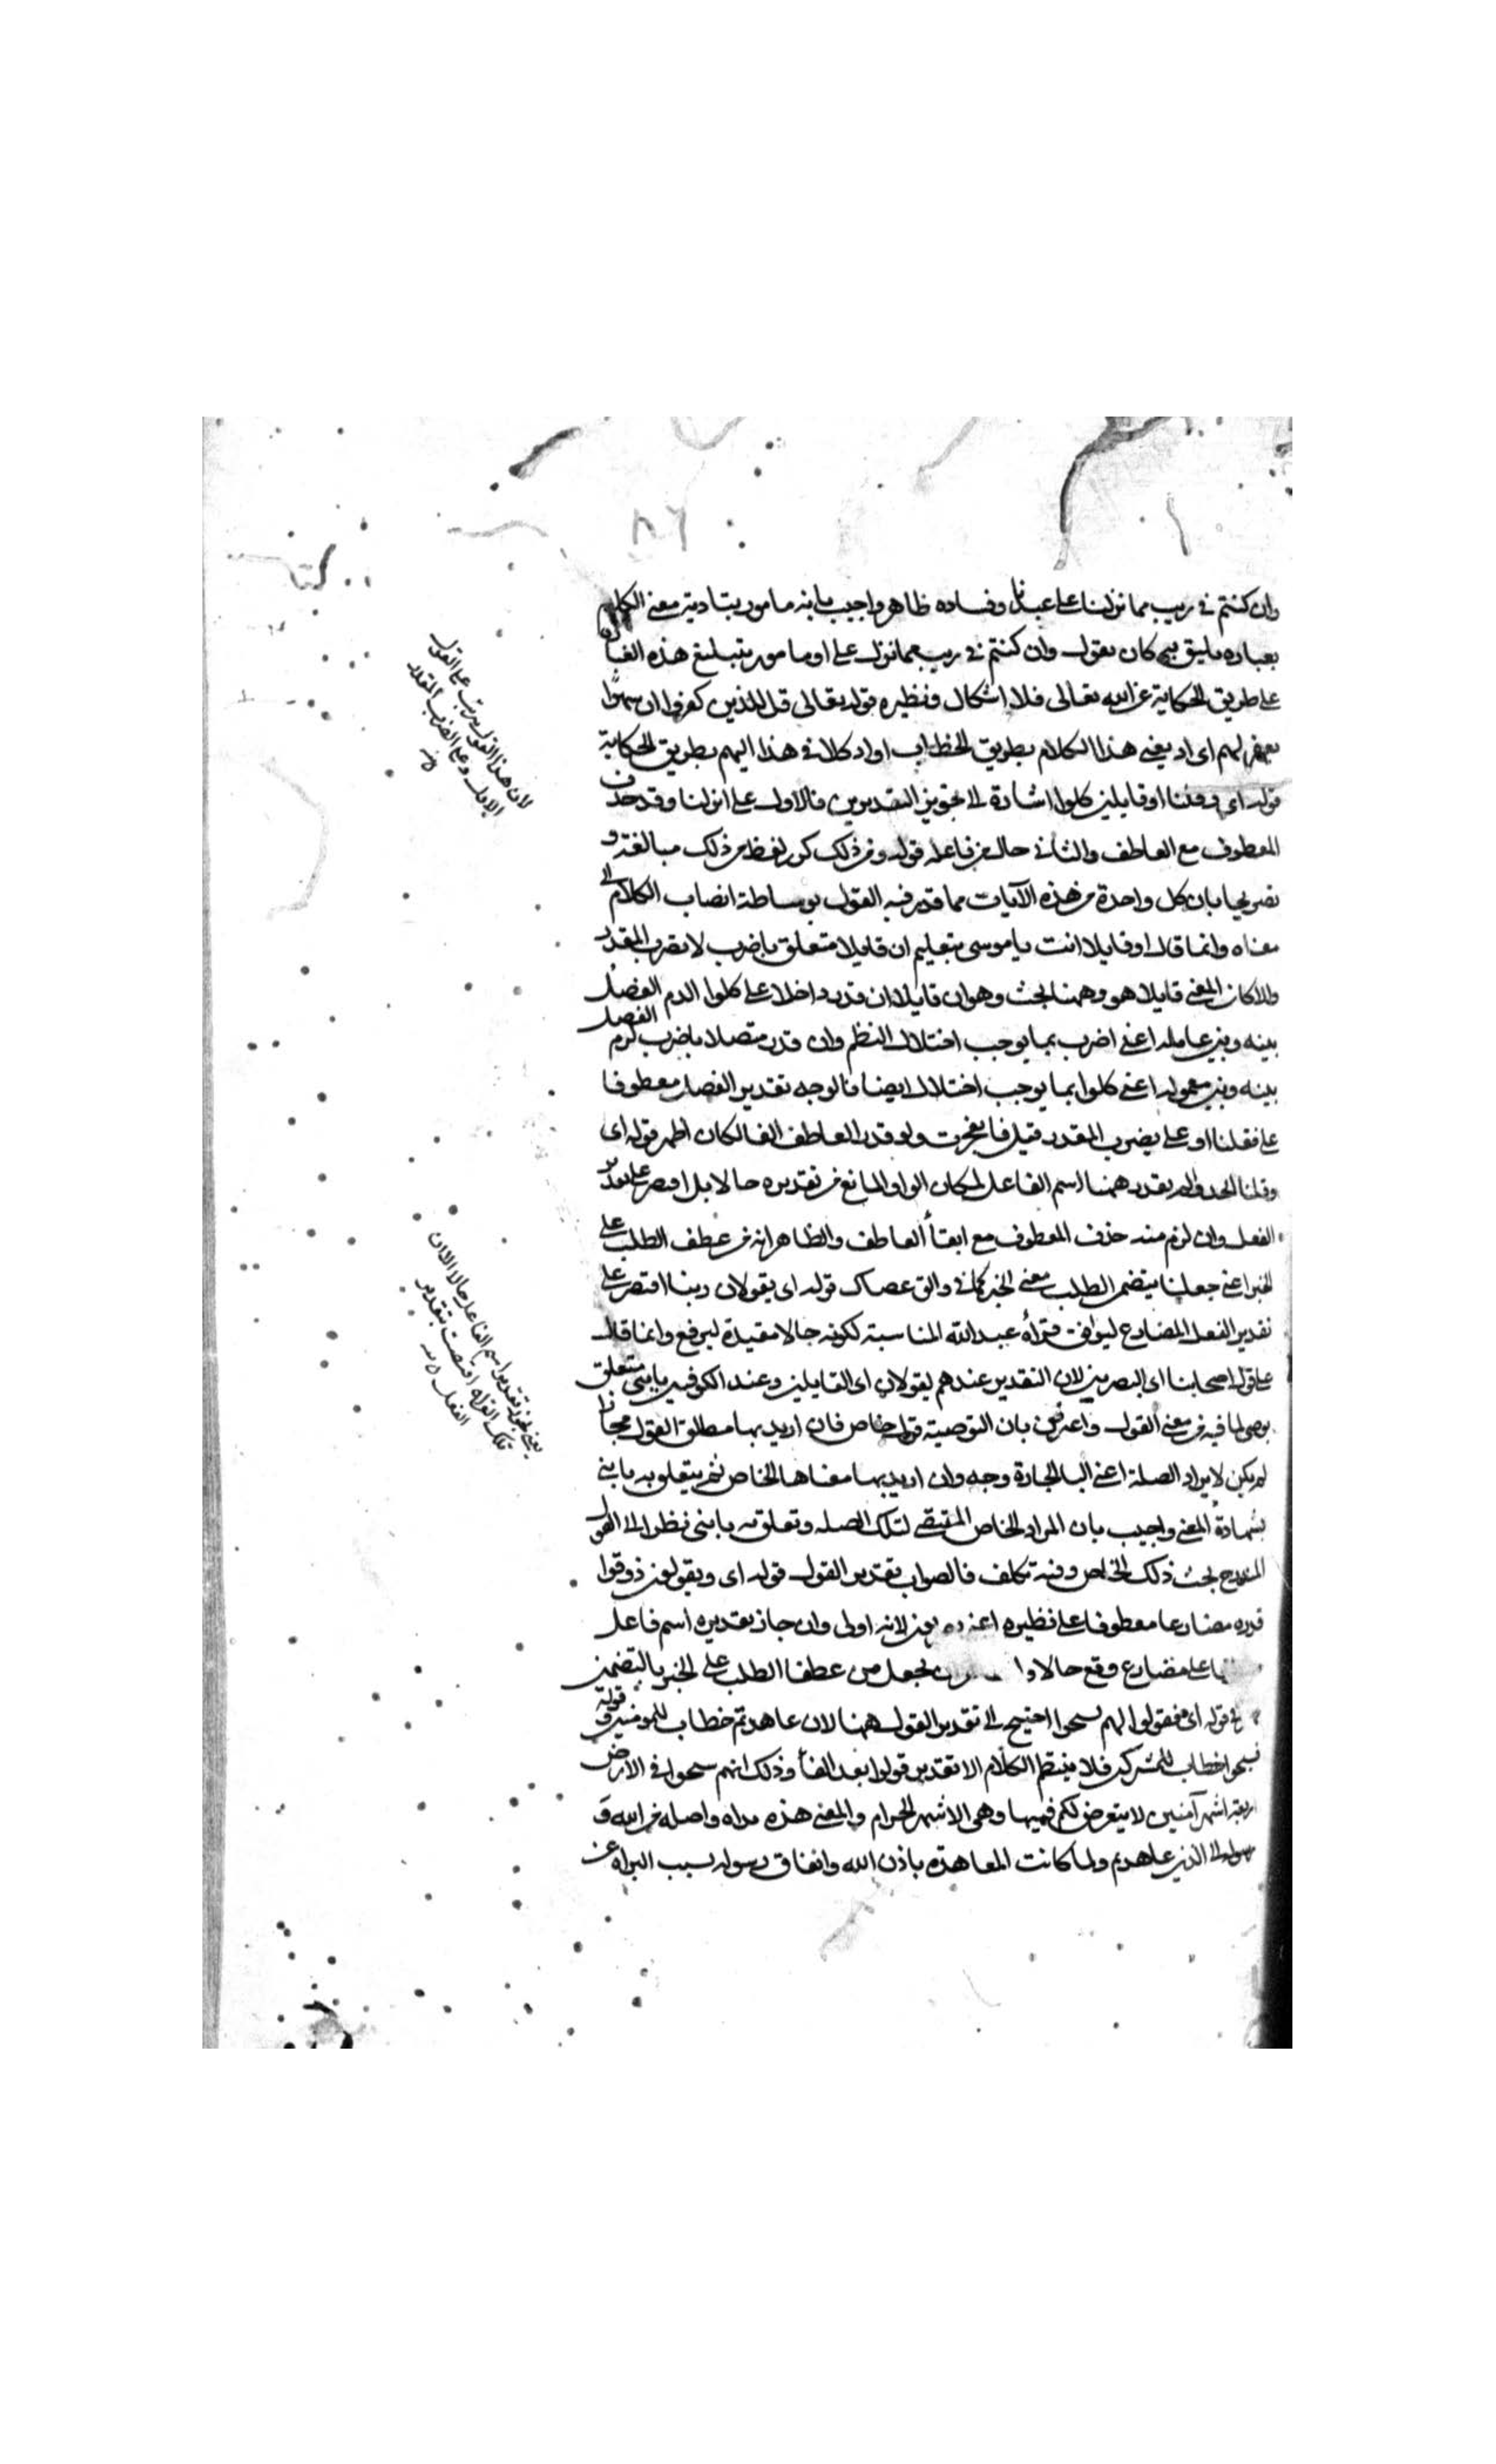 وان كنتم في ريب مما نزلنا على عبدنا وفساده ظاهر واجيب بانه مامور بتادية معنى الكلام
بعباره يليق به كان يقول وان كنتم في ريب مما نزل على او مامور بتبليغ هذه العبارة
على طريق الحكاية عن الله تعالى فلا اشكال ونظيره قوله تعالى قل للذين كفروا ان ينتهوا
يغفر لهم اى اد يعنى هذا الكلام بطريق الخطاب او اد كلا في هذا اليهم بطريق الحكاية
قوله اى وقلنا او قايلين كلوا اشارة الى تجويز التقديرين فالاول على انزلنا وقد حذف
المعطوف مع العاطف والثانى حال من فاعله قوله ومن ذلك كرر لفظ من ذلك مبالغة و
تصريحا بان كل واحدة من هذه الآيات مما قدر فيه القول بوساطة انصاب الكلام الى
معناه وانما قال او قايلا انت يا موسى بتعليم ان قايلا متعلق باضرب لا بضرب المقدر
والا كان المعنى قايلا هو وههنا بحث وهو ان قايلا ان قدر داخلا على كلوا لزم الفصل
بينه وبين عامله اعنى اضرب بما يوجب اختلال النظم وان قدر متصلا باضرب لزم الفصل
بينه وبين معموله اعنى كلوا بما يوجب اختلال ايضا فالوجه تقدير الفصل معطوفا
على فقلنا او على يضرب المقدر قبل فانفجرت ولو قدر العاطف الفا لكان اظهر قوله اى
وقلنا الخذوا لم يقدر ههنا اسم الفاعل لمكان الواو المانع من تقديره حالا بل اقتصر على تقدير
الفعل وان لزم منه حذف المعطوف مع ابقاء العاطف والظاهر انه من عطف الطلب على
الخبر اعنى جعلنا يتضمن الطلب معنى الخبر كما في والق عصاك قوله اى يقولان ربنا اقتصر على
تقدير الفعل المضارع ليوافق قراة عبد الله المناسبة لكونه حالا مقيدة ليرفع وانما قال
على قول اصحابنا اى البصريين لان التقدير عندهم يقولان اى القايلين وعند الكوفيين يا بنى متعلق
بوصى لما فيه من معنى القول واعترض بان التوصية قول خاص فان اريد بها مطلق القول مجازا
لم يكن لايراد الصلة اعنى البا الجارة وجه وان اريد بها معناها الخاص لم يتعلق به يا بنى
بشهادة المعنى واجيب بان المراد الخاص المقتضى لتلك الصله وتعلق به يا بنى نظرا الى القول
المندرج تحت ذلك الخاص وفيه تكلف فالصواب تقدير القول قوله اى ويقولون ذوقوا
قدره مضارعا معطوفا على نظيره لانه اولى وان جاز تقديره اسم فاعل
على مضارع وقع حالا يجعل من عطف الطلب على الخبر بالتضمن
قوله اى فقولوا لهم سيحوا احتيج الى تقدير القول ههنا لان عاهدتم خطاب للمومنين وقوله
فسيحوا خطاب للمشركين فلا ينتظم الكلام الا بتقدير قولوا بعد الفاء وذلك انهم سيحوا في الارض
اربعة اشهر آمنين لا يتعرض لكم فيها وهى الاشهر الحرام والمعنى هذه براه واصله من الله و
رسوله الى الذين عاهدتم ولما كانت المعاهدة باذن الله واتفاق رسوله بسبب البراه عن
لان هذا القول يترتب على القول
الاول وعلى الضرب المقدر
منه
يعنى يجوز تقدير اسم الفاعل حالا الا ان
تلك القراة اقتضت بتقدير
الفعل منه